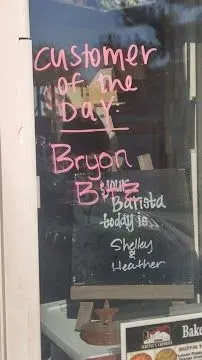 Customer
of the
Day
Bryon
B
your
Barista
today is...
Shelley
&
Heather